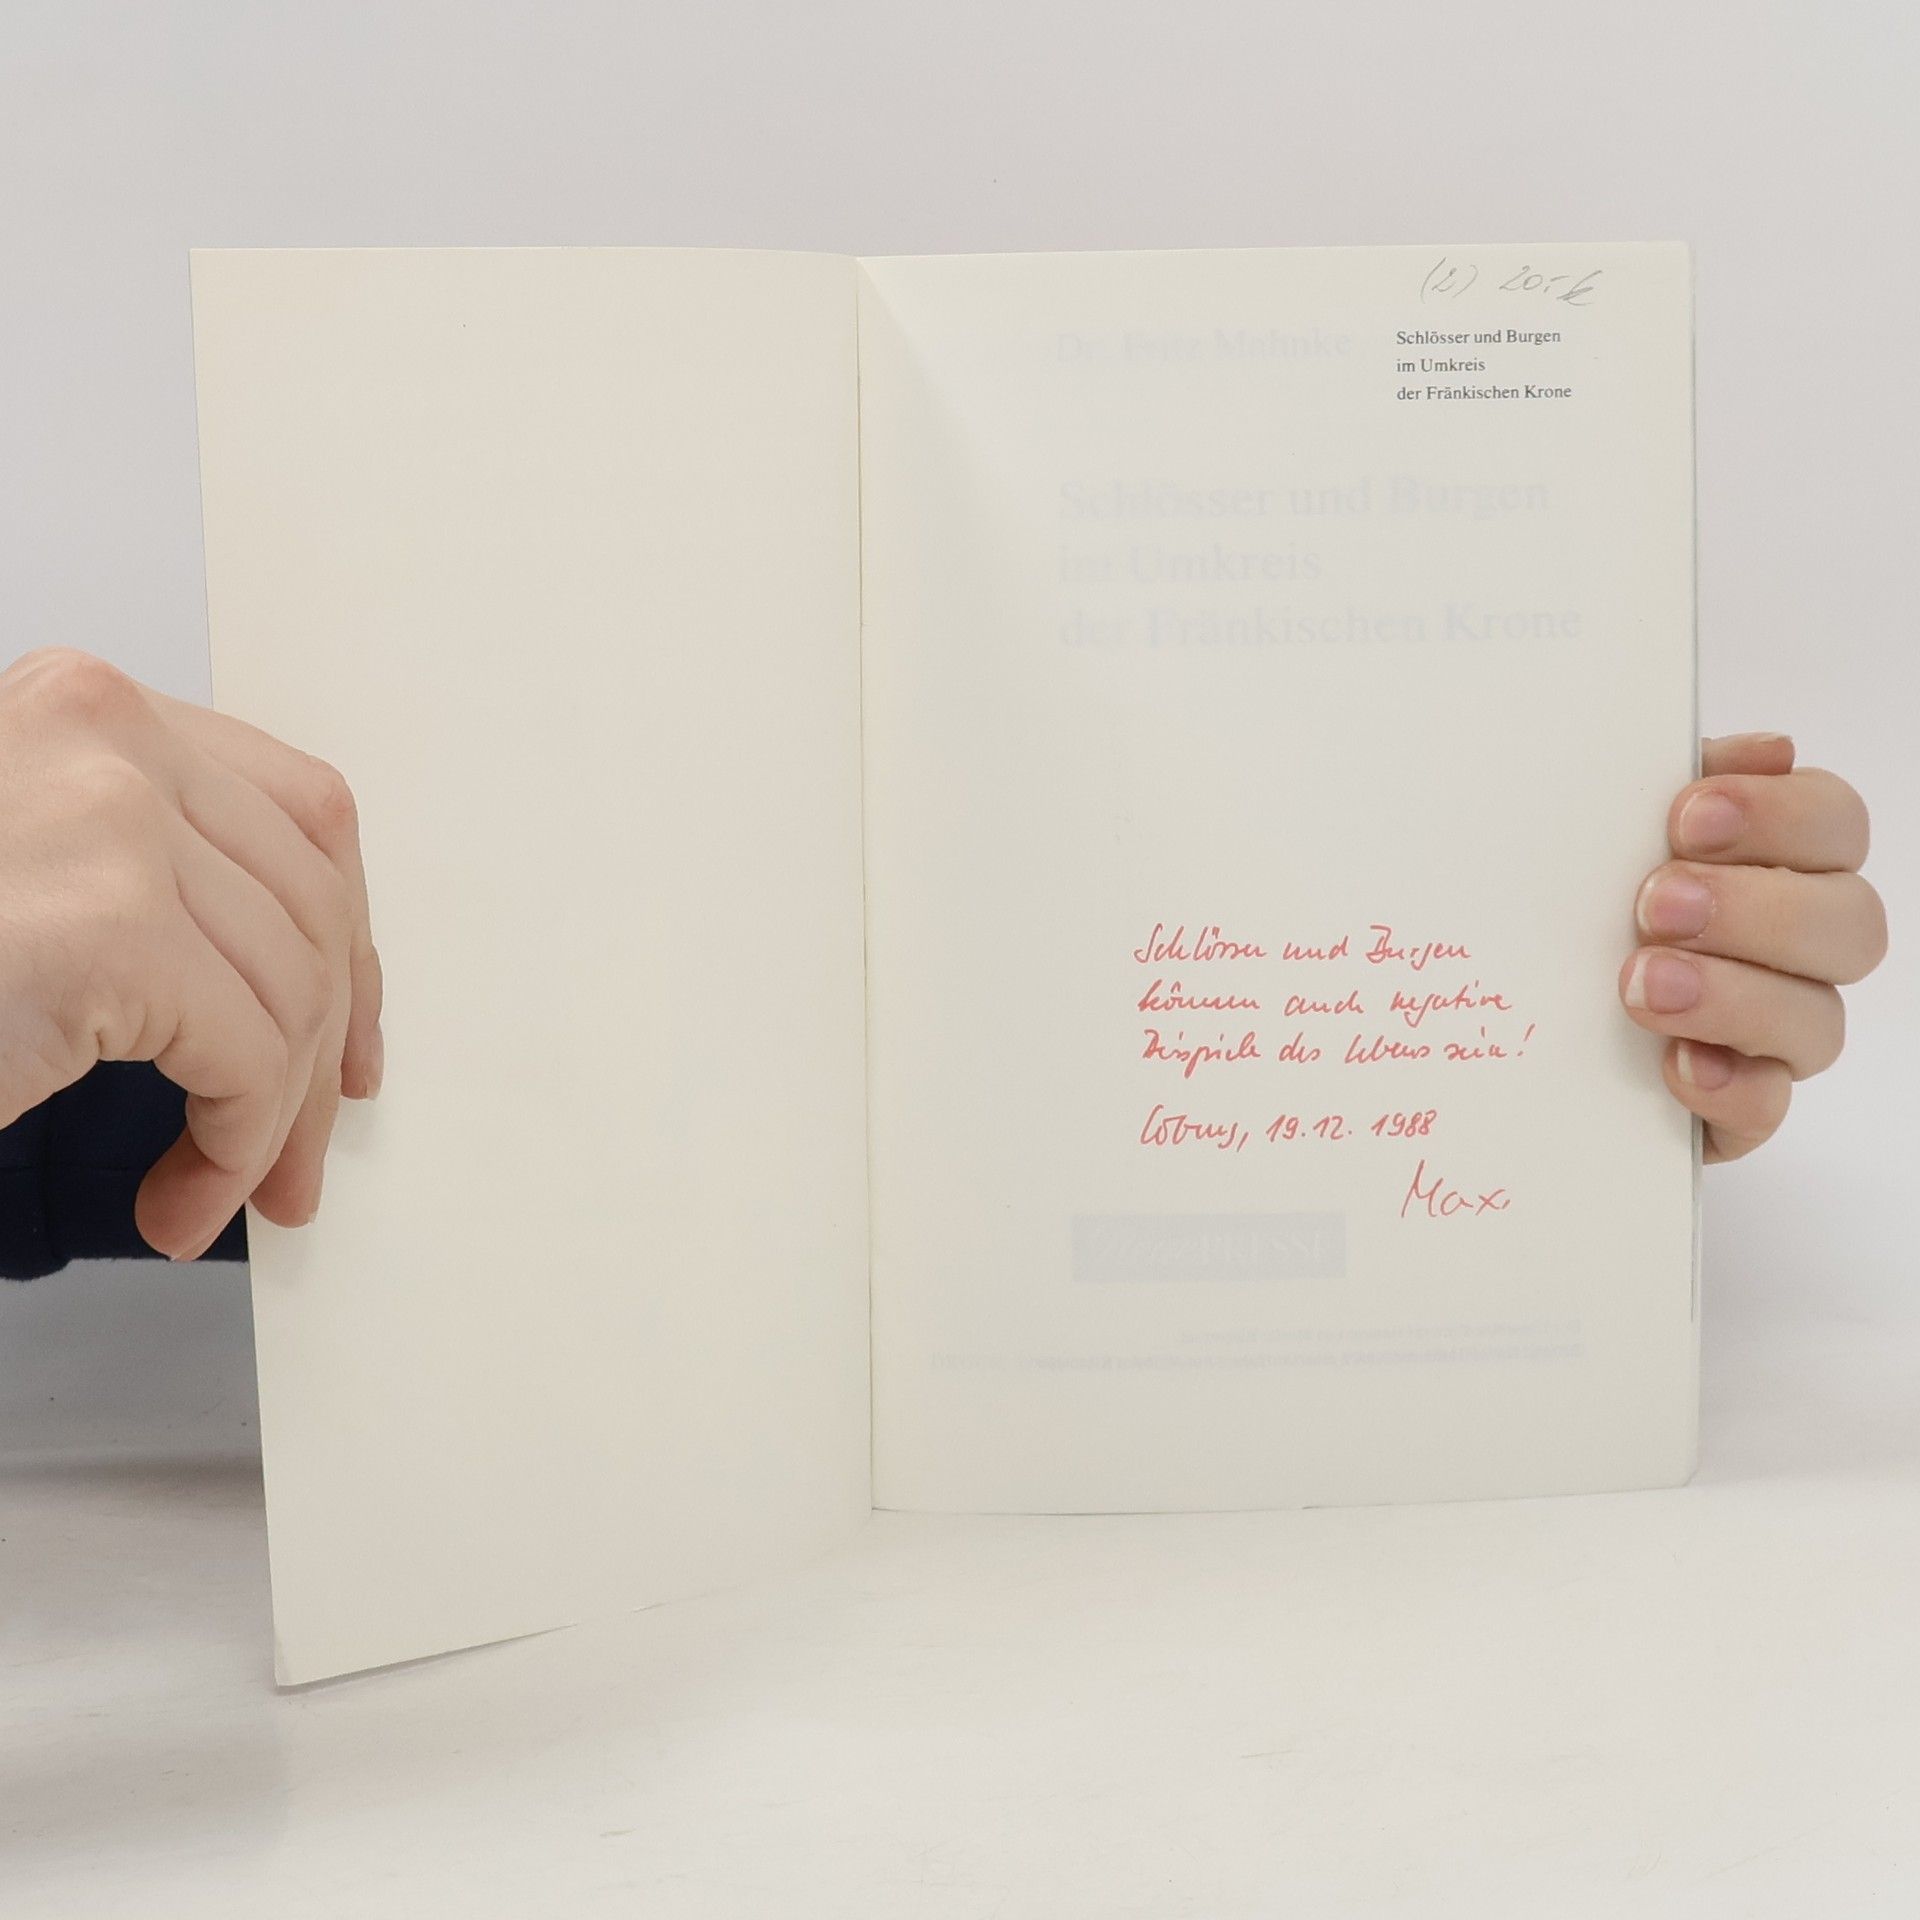 (2) 20,-
Schlösser und Burgen
im Umkreis
der Fränkischen Krone
Dr. Fritz Mahnke
Schlösser und Burgen
im Umkreis
der Fränkischen Krone
Schlösser und Burgen
können auch negative
Beispiele des Lebens sein!
Coburg, 19.12. 1988
Max.
Neue PRESSE